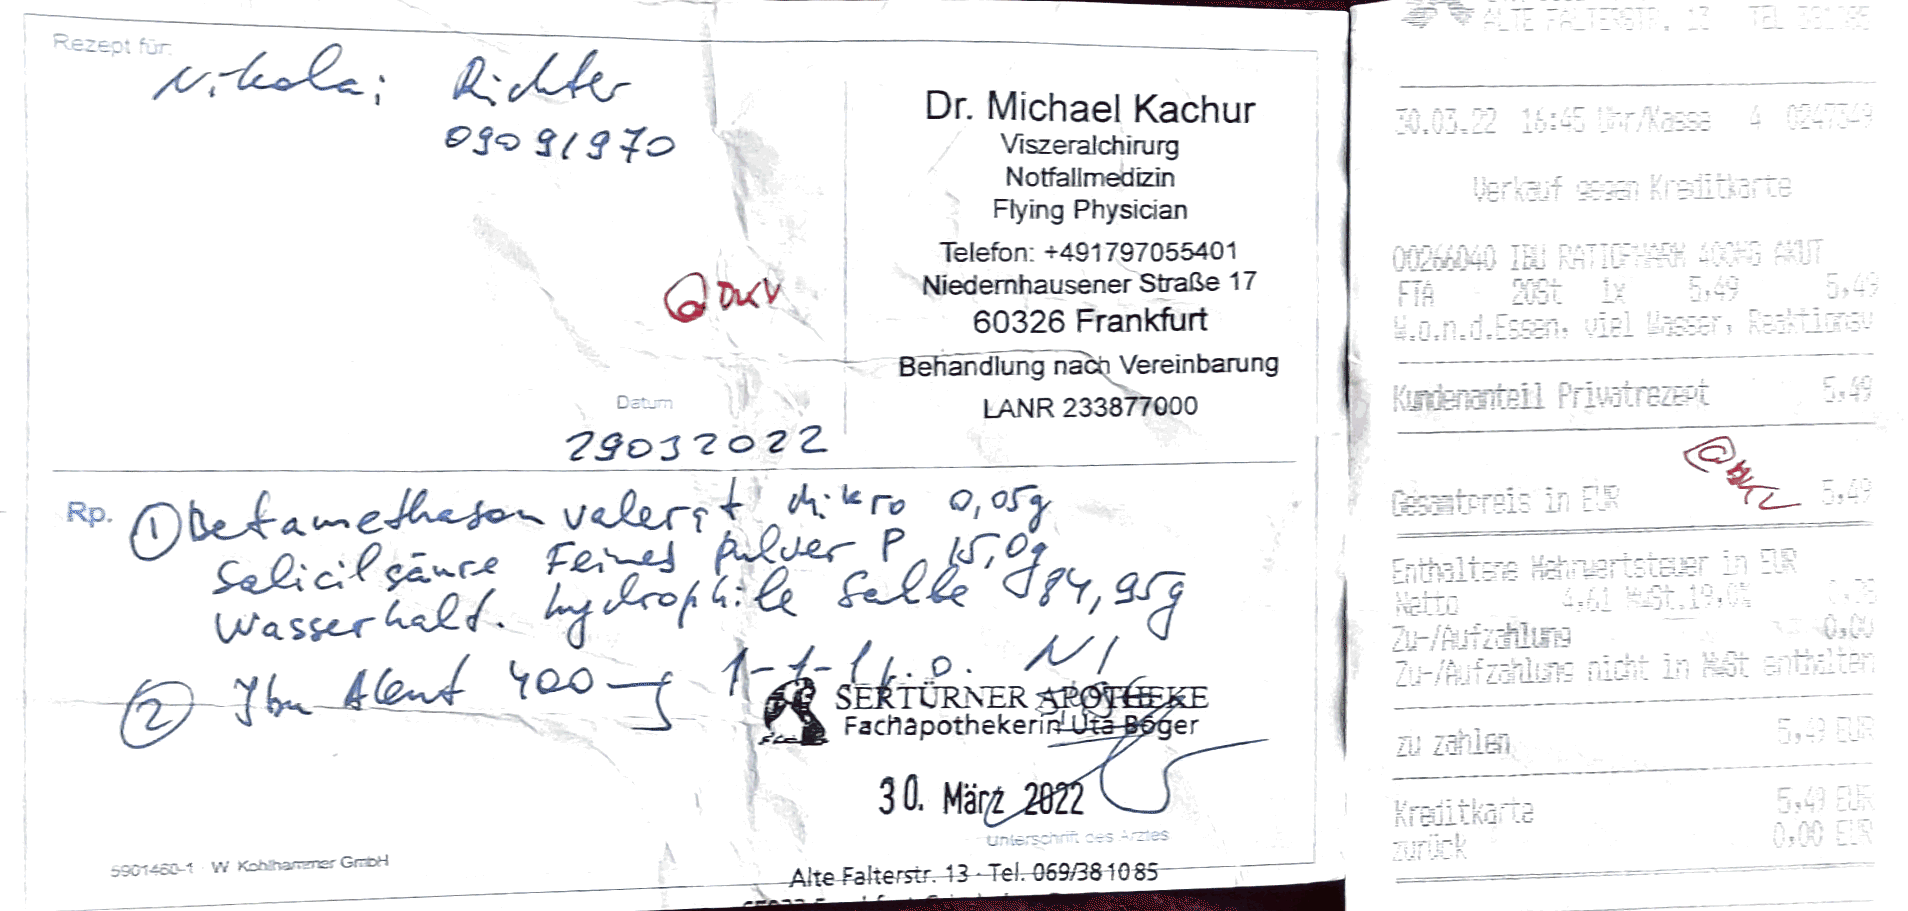 Rezept für:
Nikolai Richter
09091970
Dr. Michael Kachur
Viszeralchirurg
Notfallmedizin
Flying Physician
Telefon: +491797055401
Niedernhausener Straße 17
60326 Frankfurt
Behandlung nach Vereinbarung
LANR 233877000
@DKV
Datum
29032022
Rp. ① Betamethason valerat mikro 0,05g
Salicilsäure Feines pulver P 15,0g
Wasserhalt. hydrophile Salbe 84,95g
② Ibu Akut 400mg 1-1-1 p.o. N1
SERTÜRNER APOTHEKE
Fachapothekerin Uta Böger
30. März 2022
Unterschrift des Arztes
5901460-1 · W Kohlhammer GmbH
Alte Falterstr. 13 · Tel. 069/381085
ALTE FALTERSTR. 13 TEL 381085
30.03.22 16:45 Uhr/Kasse 4 0247349
Verkauf gegen Kreditkarte
00266040 IBU RATIOPHARM 400MG AKUT
FTA 20St 1x 5,49 5,49
W.o.n.d.Essen, viel Wasser, Reaktionsv
Kundenanteil Privatrezept 5,49
@DKV
Gesamtpreis in EUR 5,49
Enthaltene Mehrwertsteuer in EUR
Netto 4,61 MwSt.19,0%
Zu-/Aufzahlung 0,00
Zu-/Aufzahlung nicht in MwSt enthalten
zu zahlen 5,49 EUR
Kreditkarte 5,49 EUR
zurück 0,00 EUR